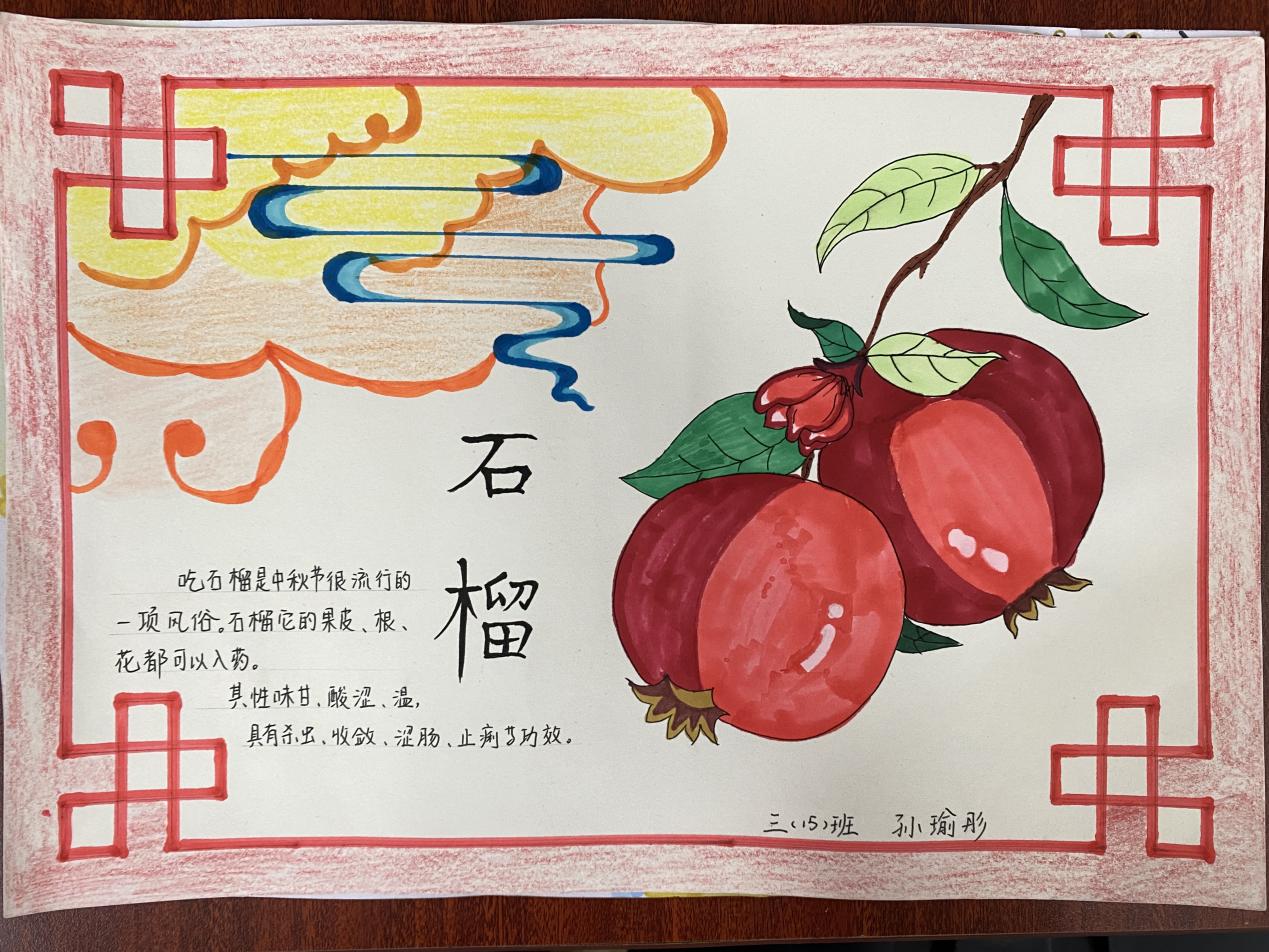 石榴
吃石榴是中秋节很流行的
一项风俗。石榴它的果皮、根、
花都可以入药。
其性味甘、酸涩、温,
具有杀虫、收敛、涩肠、止痢等功效。
三(15)班 孙瑜彤